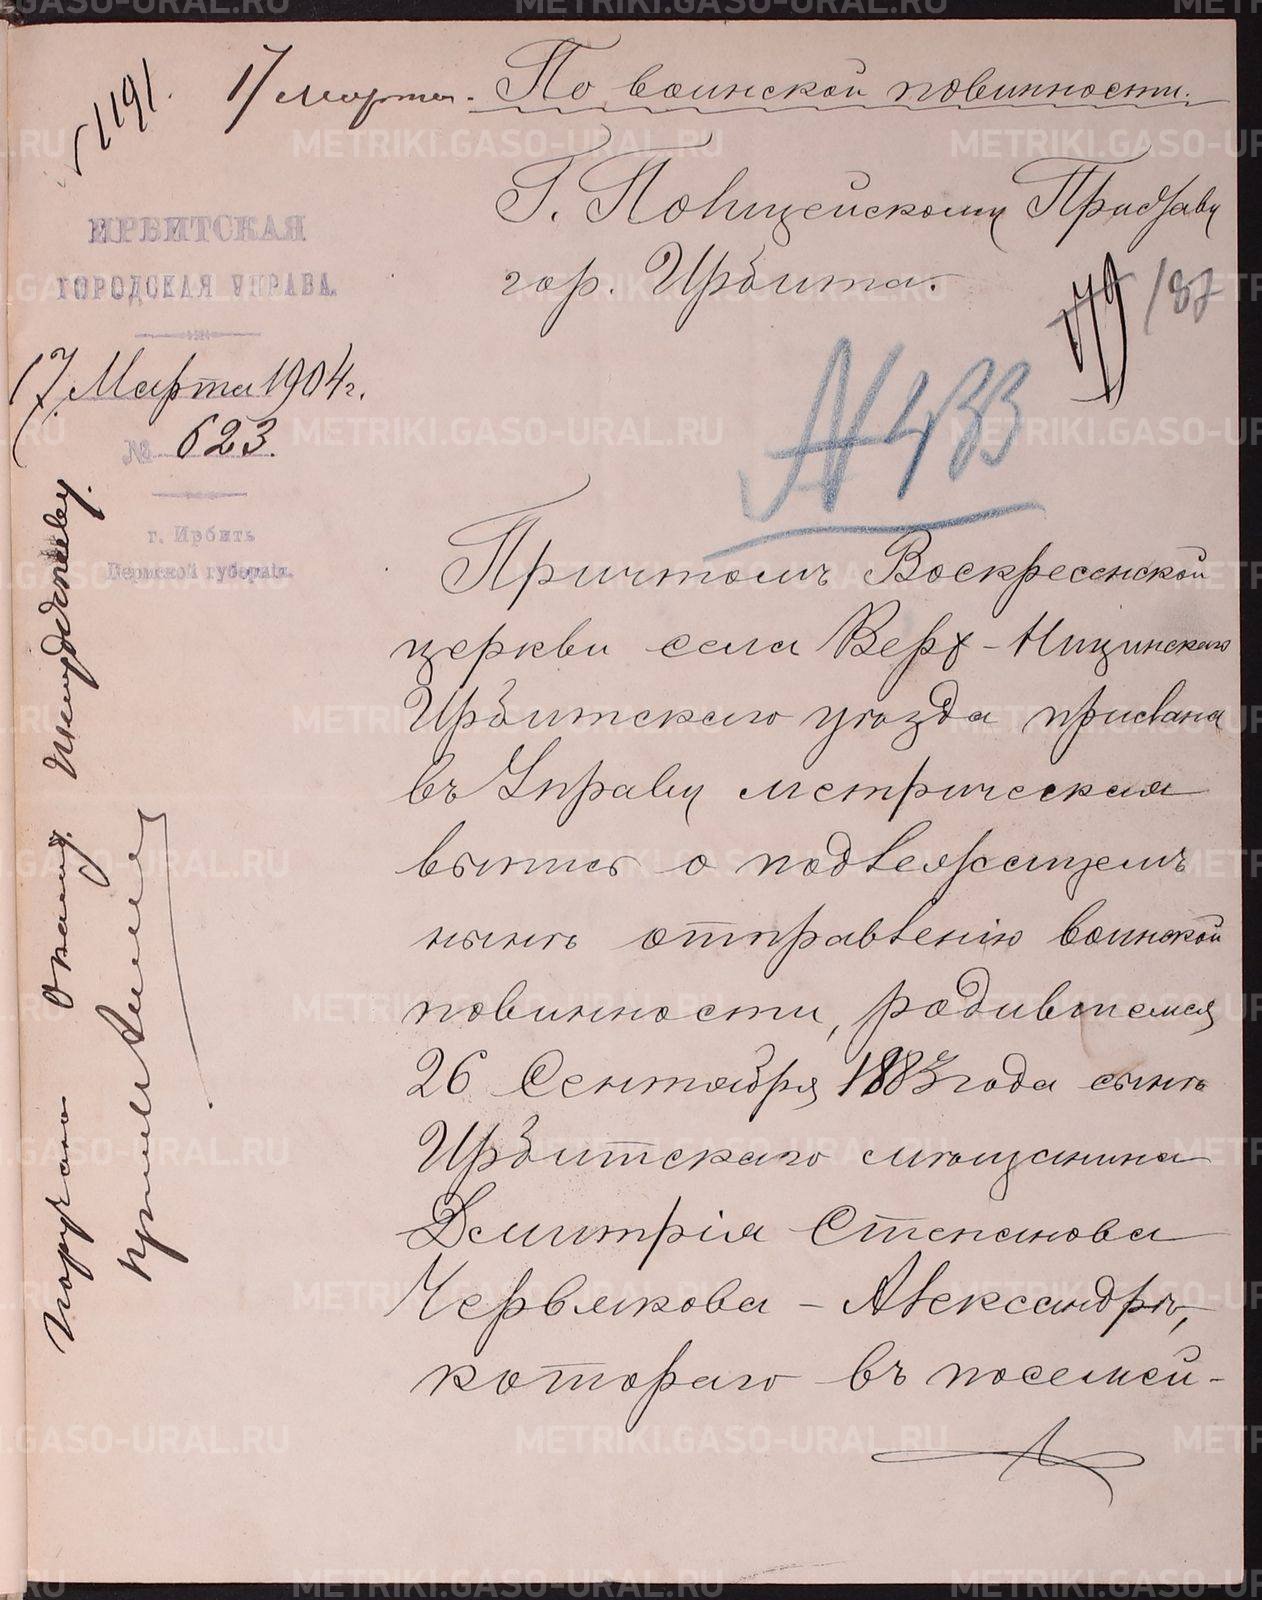 1191.
17 Марта.
По воинской повинности.
Г. Полицейскому Приставу
гор. Ирбита.
79 /87
ИРБИТСКАЯ
ГОРОДСКАЯ УПРАВА.
17 Марта 1904 г.
№ 623.
г. Ирбитъ
Пермской губерніи.
№ 433
Причтомъ Воскресенской
церкви села Верх-Ницинскаго
Ирбитскаго уѣзда прислана
въ Управу метрическая
выпись о подлежащемъ
нынѣ отправленію воинской
повинности, родившемся
26 Сентября 1883 года сынѣ
Ирбитскаго мѣщанина
Дмитрія Степанова
Червякова - Александрѣ,
котораго въ посемей-
Поручаю
METRIKI.GASO-URAL.RU